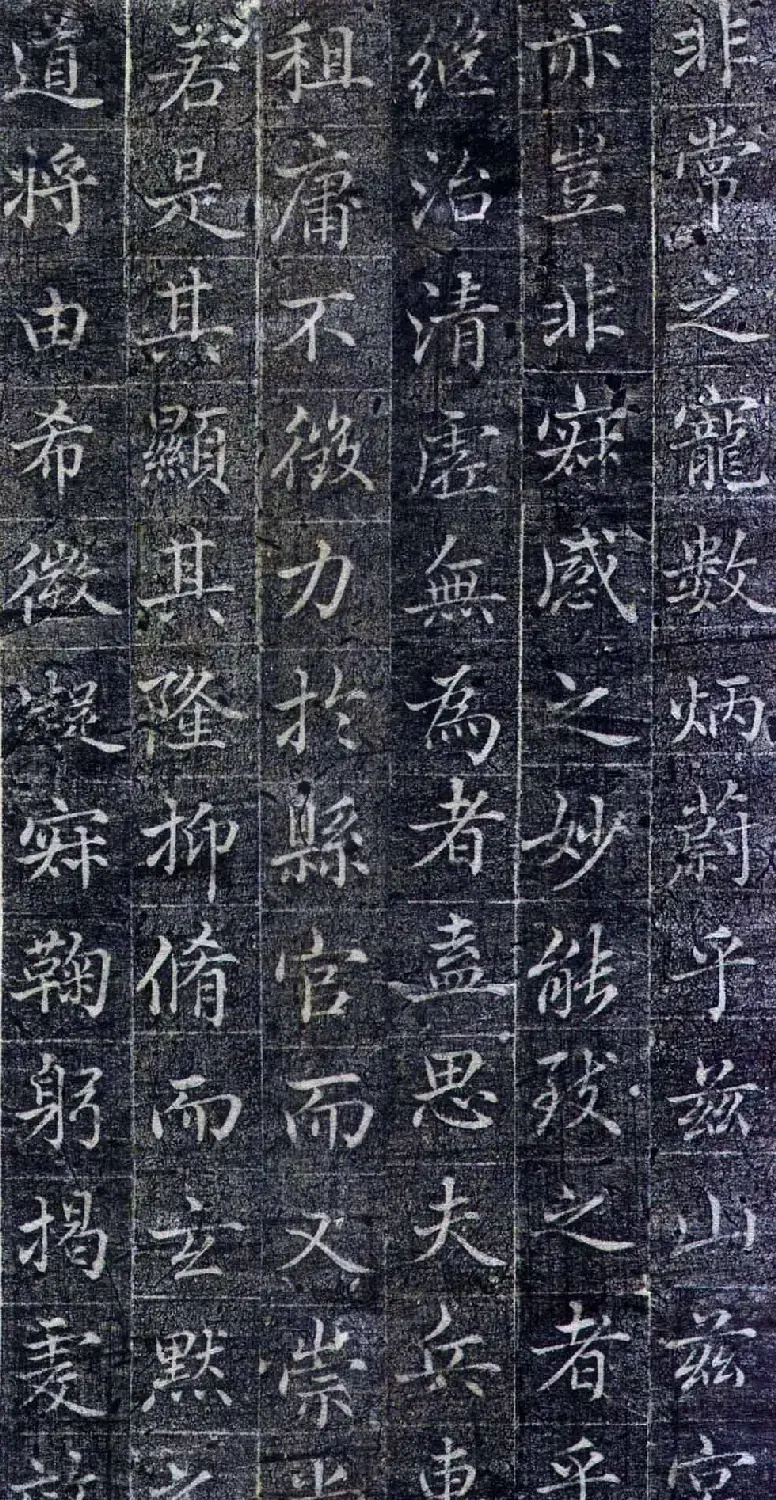 非常之寵數炳蔚乎茲山茲宮
亦豈非寂感之妙能致之者乎
繼治清虛無為者盍思夫兵車
租庸不徵力於縣官而又崇
若是其顯其隆抑脩而玄默之
道將由希微凝寂鞠躬揭虔